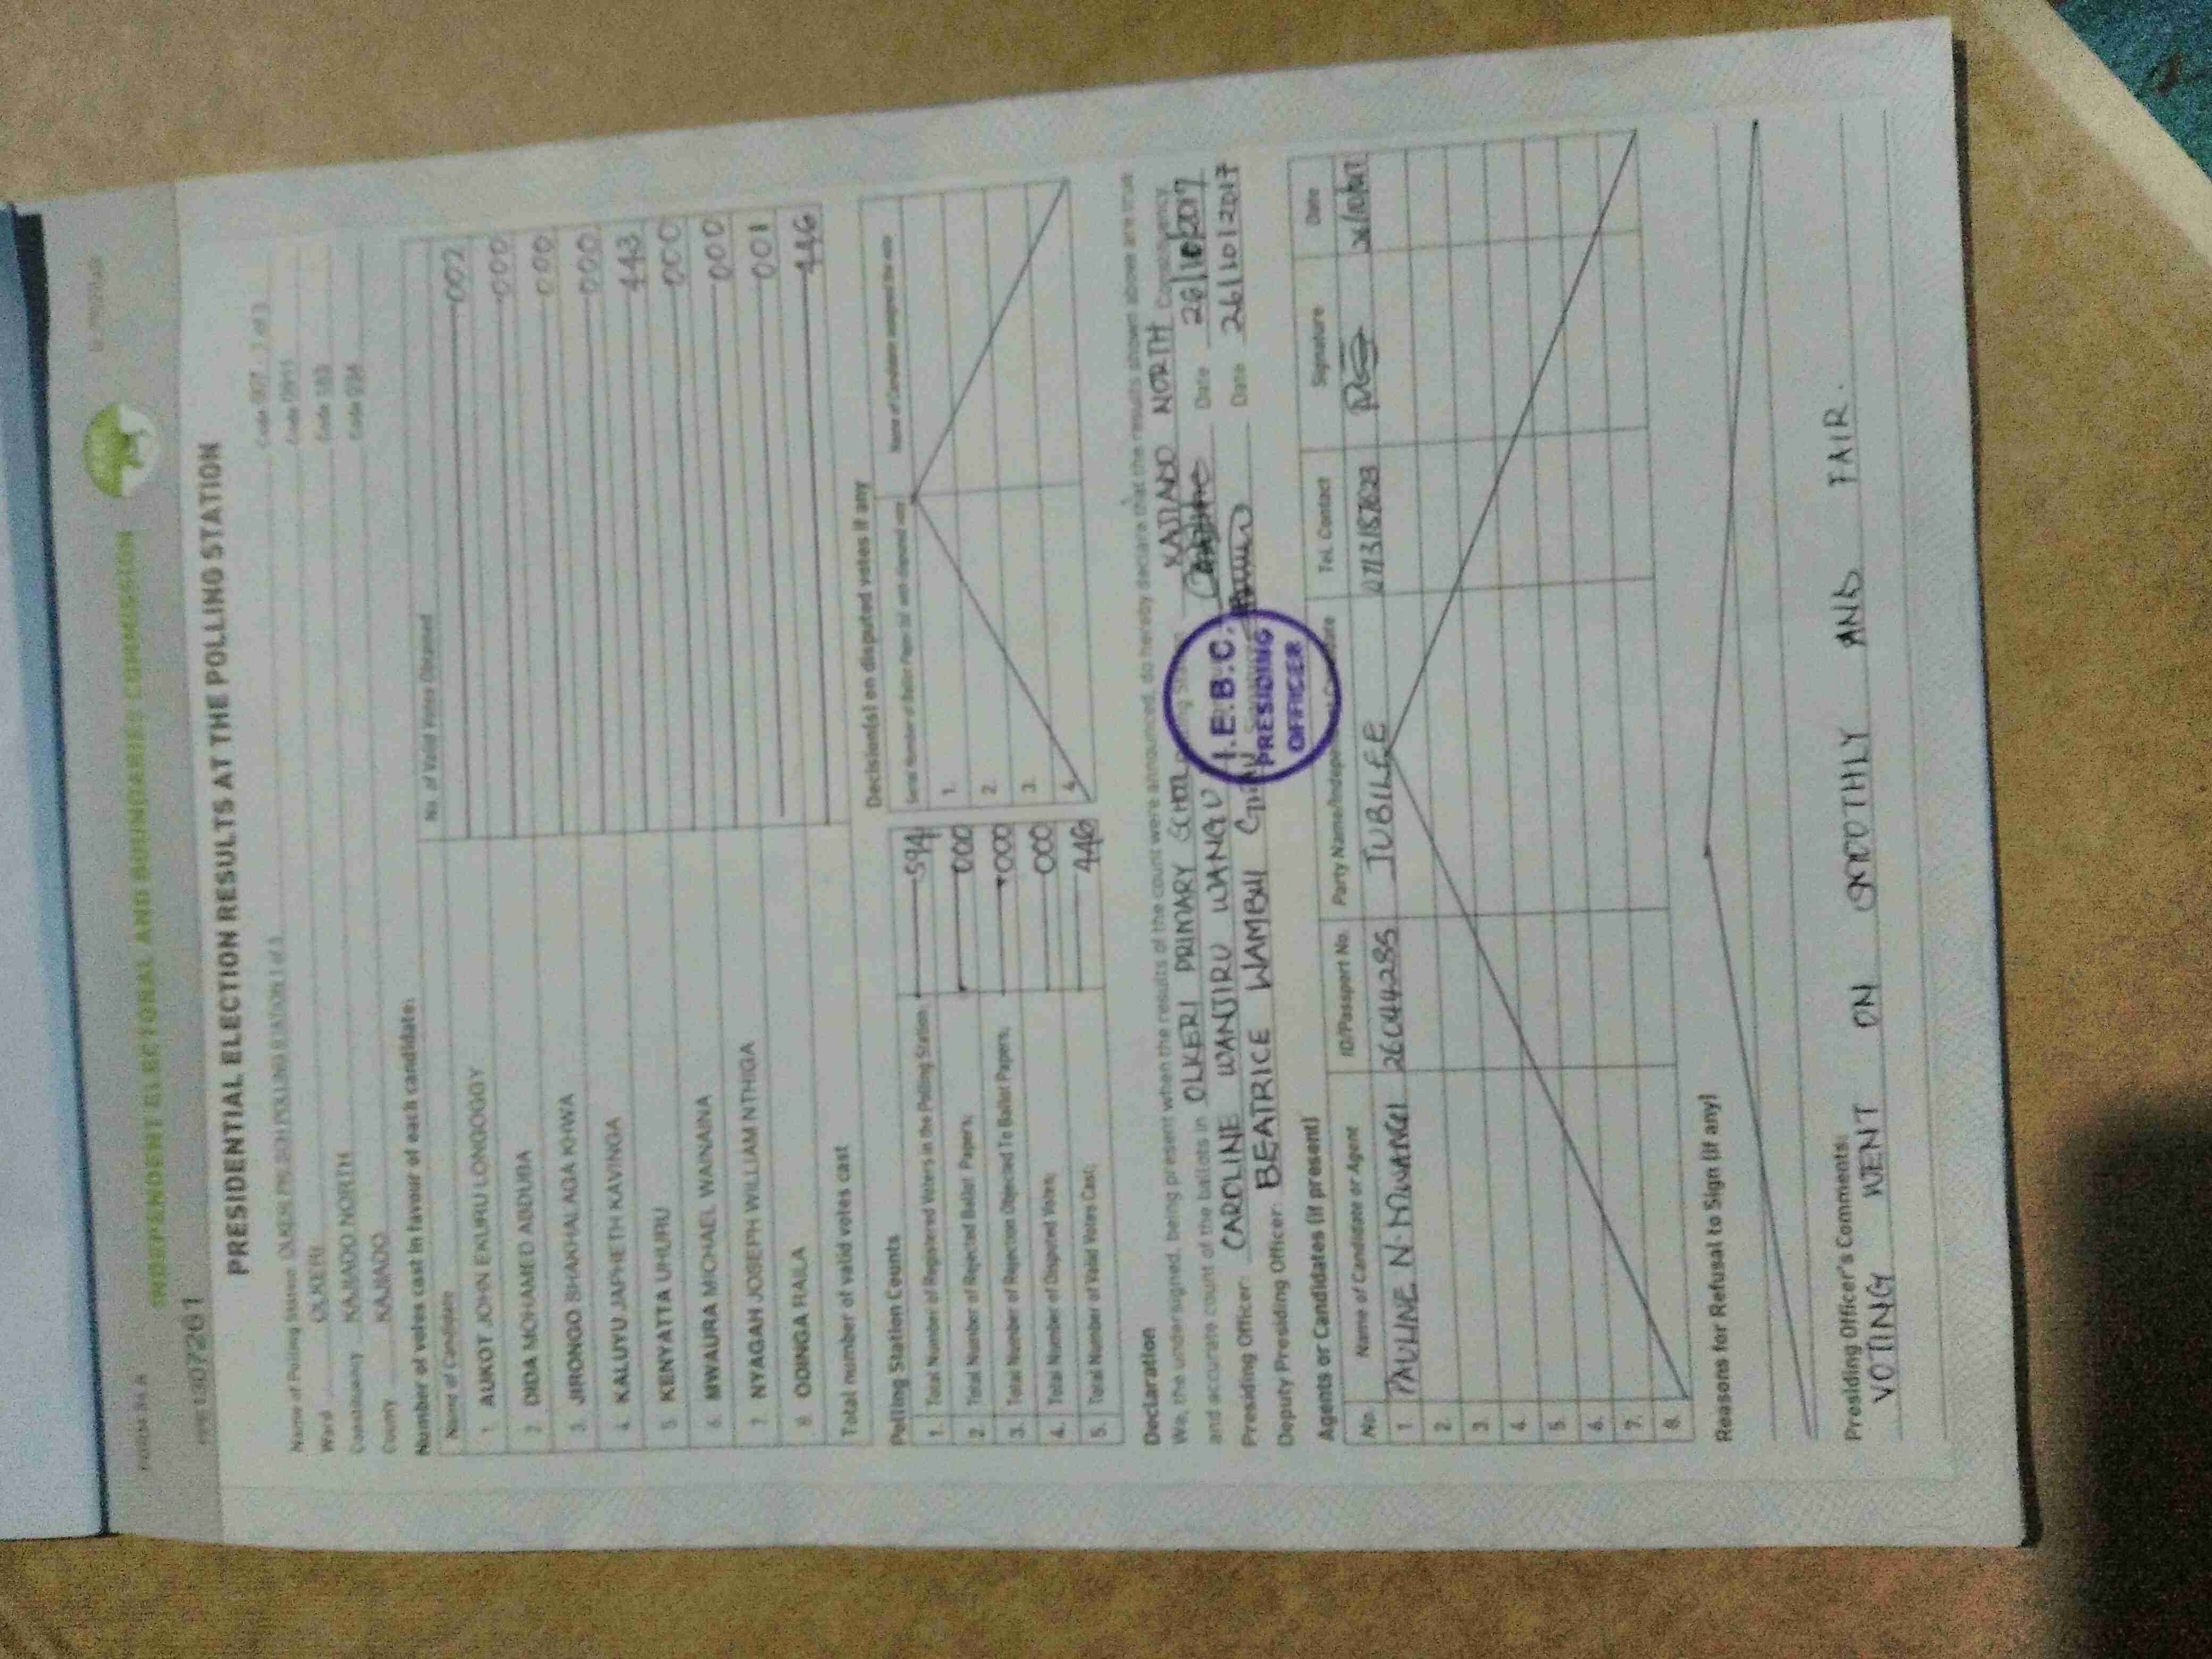 FORM 34 A
INDEPENDENT ELECTORAL AND BOUNDARIES COMMISSION
PRESIDENTIAL ELECTION RESULTS AT THE POLLING STATION
Name of Polling Station
Ward OLKERI Code 0911
Constituency KAJIADO NORTH Code 183
County KAJIADO Code 034
Number of votes cast in favour of each candidate:
Name of Candidate No. of Valid Votes Obtained
1 AUKOT JOHN EKURU LONGOGGY 002
2 DIDA MOHAMED ABDUBA 000
3 JIRONGO SHAKHALAGA KHWA 000
4 KALUYU JAPHETH KAVINGA 000
5 KENYATTA UHURU 443
6 MWAURA MICHAEL WAINAINA 000
7 NYAGAH JOSEPH WILLIAM NTHIGA 000
8 ODINGA RAILA 001
Total number of valid votes cast 446
Polling Station Counts
1. Total Number of Registered Voters in the Polling Station 594
2. Total Number of Rejected Ballot Papers: 000
3. Total Number of Rejection Objected To Ballot Papers: 000
4. Total Number of Disputed Votes: 000
5. Total Number of Valid Votes Cast: 446
Decision(s) on disputed votes if any
1.
2.
3.
4.
Declaration
We, the undersigned, being present when the results of the count were announced, do hereby declare that the results shown above are true
and accurate count of the ballots in OLKERI PRIMARY SCHOOL KAJIADO NORTH Constituency
Presiding Officer: CAROLINE WANJIRU WANGU Date 26/10/2017
Deputy Presiding Officer: BEATRICE WAMBUI Date 26/10/2017
I.E.B.C.
PRESIDING
OFFICER
Agents or Candidates (if present)
No. Name of Candidate or Agent ID/Passport No. Party Name/ Tel. Contact Signature Date
1 PAULINE N. MWANGI 26044285 JUBILEE 0713157623 26/10/2017
2.
3.
4.
5.
6.
7.
8.
Reasons for Refusal to Sign (if any)
Presiding Officer's Comments:
VOTING WENT ON SMOOTHLY AND FAIR.